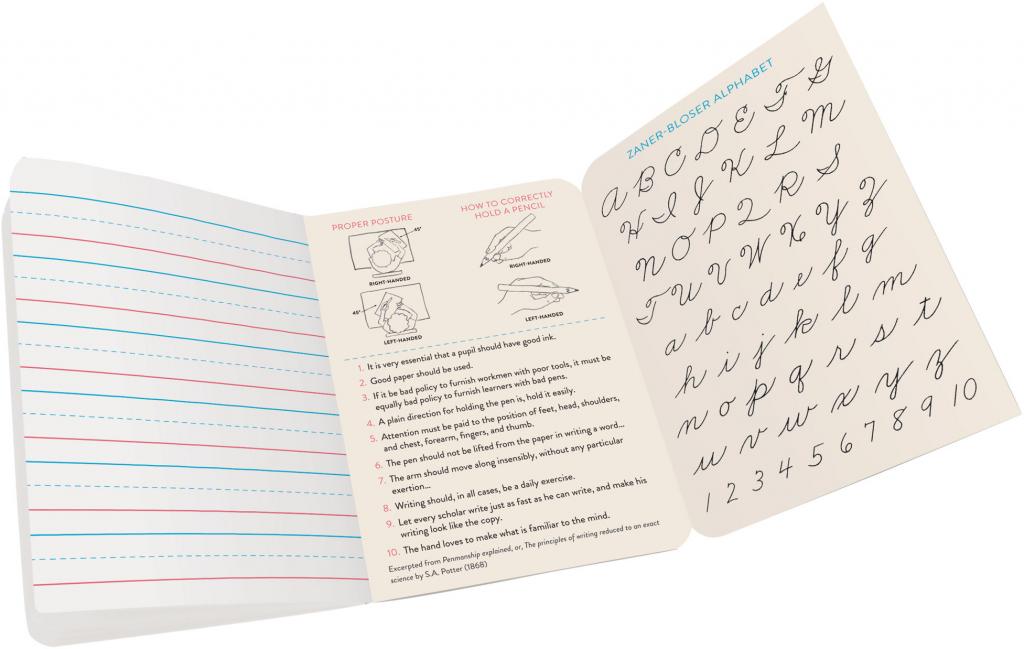 PROPER POSTURE
45°
RIGHT-HANDED
45°
LEFT-HANDED
HOW TO CORRECTLY
HOLD A PENCIL
RIGHT-HANDED
LEFT-HANDED
1. It is very essential that a pupil should have good ink.
2. Good paper should be used.
3. If it be bad policy to furnish workmen with poor tools, it must be
equally bad policy to furnish learners with bad pens.
4. A plain direction for holding the pen is, hold it easily.
5. Attention must be paid to the position of feet, head, shoulders,
and chest, forearm, fingers, and thumb.
6. The pen should not be lifted from the paper in writing a word...
7. The arm should move along insensibly, without any particular
exertion...
8. Writing should, in all cases, be a daily exercise.
9. Let every scholar write just as fast as he can write, and make his
writing look like the copy.
10. The hand loves to make what is familiar to the mind.
Excerpted from Penmanship explained, or, The principles of writing reduced to an exact
science by S.A. Potter (1868)
ZANER-BLOSER ALPHABET
A B C D E F G
H I J K L M
N O P Q R S
T U V W X Y Z
a b c d e f g
h i j k l m
n o p q r s t
u v w x y z
1 2 3 4 5 6 7 8 9 10